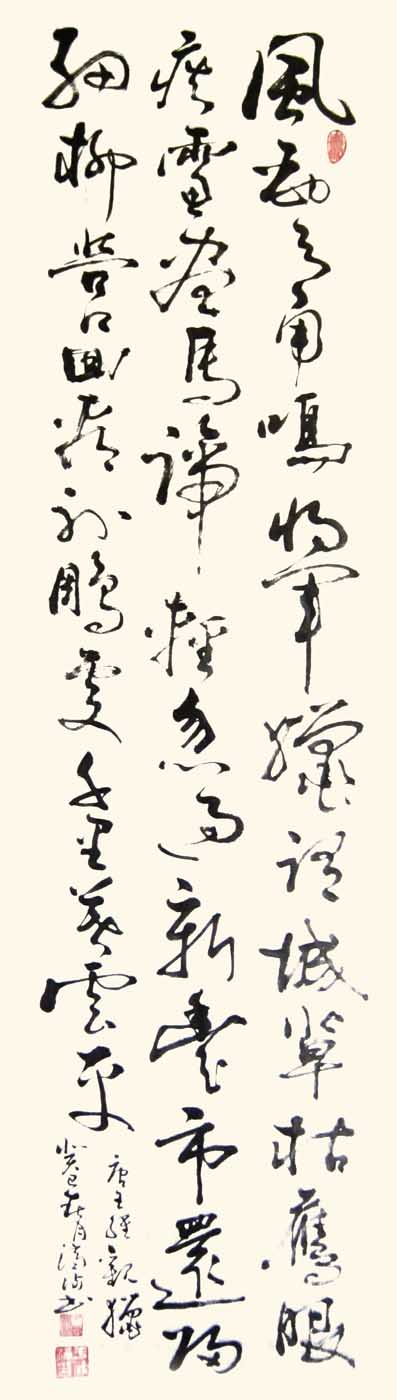 風勁弓角鳴將軍獵渭城草枯鷹眼
疾雪盡馬蹄輕忽過新豐市還歸
細柳營回看射鵰處千里暮雲平
唐王維觀獵
癸巳春月書